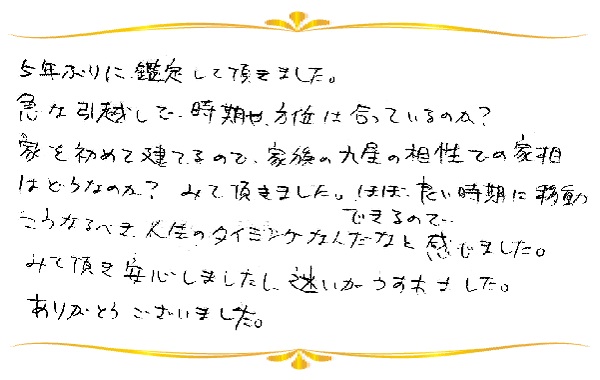 5年ぶりに鑑定して頂きました。
急な引越しで、時期や方位は合っているのか?
家を初めて建てるので、家族の九星の相性での家相
はどうなのか? みて頂きました。ほぼ、良い時期に移動
できるので、
こうなるべき人生のタイミングなんだなと感じました。
みて頂き安心しましたし、迷いがうすれました。
ありがとうございました。